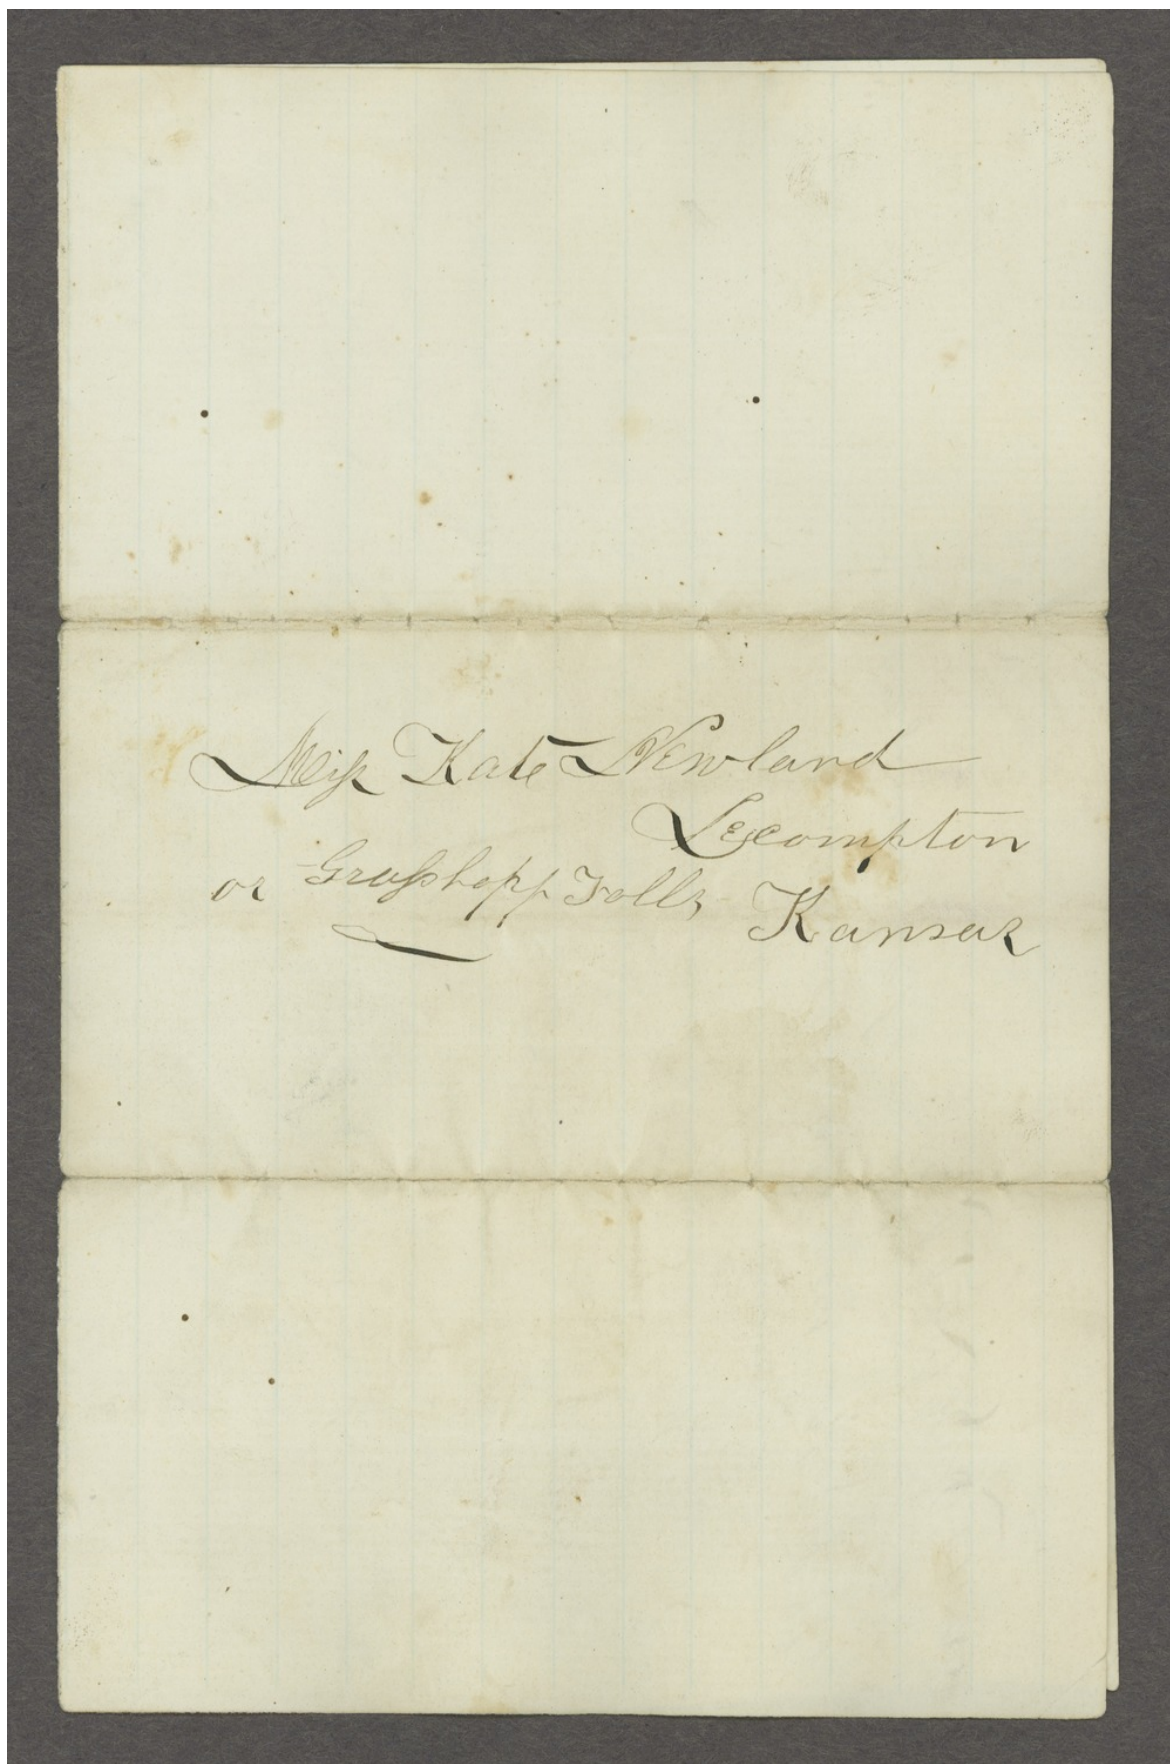 Miss Kate Newland
Lecompton
or Grasshopp Falls, Kansas